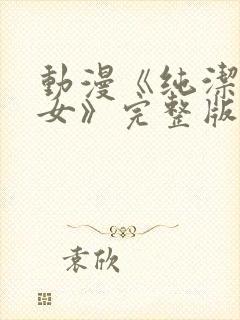 動漫《纯潔
女》完整版
袁欣